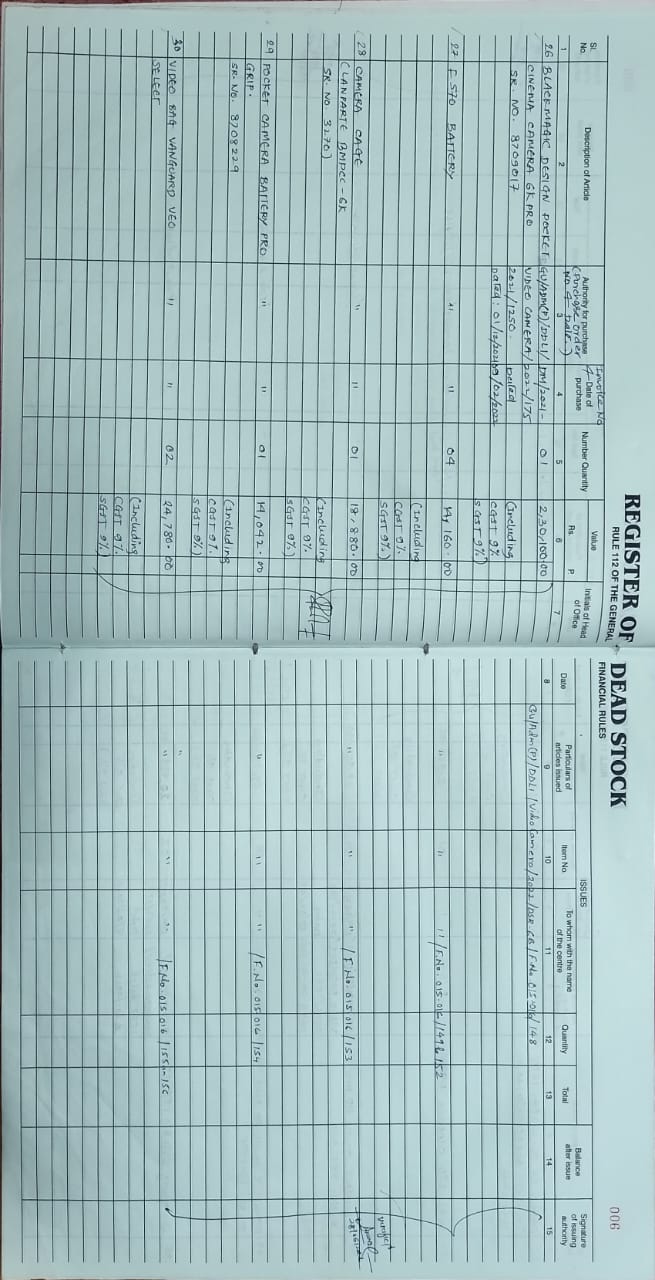 REGISTER OF DEAD STOCK
RULE 112 OF THE GENERAL FINANCIAL RULES
006
Sl. No.
Description of Article
Authority for purchase
(Purchase order No & Date.)
Invoice No
& Date of purchase
Number Quantity
Value
Rs. P
Initials of Head of Office
Date
Particulars of articles issued
ISSUES
Item No.
To whom with the name of the centre
Quantity
Total
Balance after issue
Signature of issuing authority
1 2 3 4 5 6 7 8 9 10 11 12 13 14 15
26 BLACKMAGIC DESIGN POCKET GU/ADM(P)/DDLI/ DM/2021- 01 2,30,100.00
CINEMA CAMERA 6K PRO VIDEO CAMERA/2022/175
SR. NO. 8709017 2021/1250. Dated (Including
Dated. 01/12/2021 09/02/2022 CGST 9%
SGST 9%)
GU/Adm(P)/DDLI/Video Camera/2022/DSR CB/F.No. 015.016/148
27 F 570 BATTERY " " 04 14,160.00 " " " /F.No. 015.016/149 to 152
(Including
CGST 9%
SGST 9%)
28 CAMERA CAGE " " 01 18,880.00 " " " /F.No. 015.016/153
(LANPARTE BMPCC-6K
SR. NO. 3270) (Including
CGST 9%
SGST 9%)
29 POCKET CAMERA BATTERY PRO " " 01 14,042.00 " " " /F.No. 015.016/154
GRIP.
SR. NO. 8708229 (Including
CGST 9%
SGST 9%)
30 VIDEO BAG VANGUARD VEO " " 02 24,780.00 " " " /F.No. 015.016/155 to 156
SELECT
(Including
CGST 9%
SGST 9%)